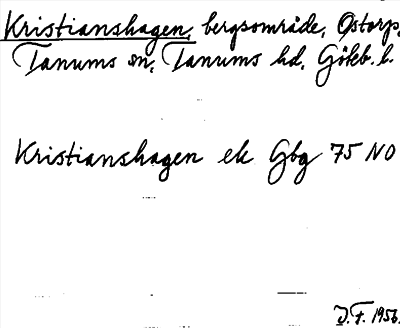 Kristianshagen, bergsområde, Ostorp,
Tanums sn, Tanums hd, Göteb. l.
Kristianshagen ek Gbg 75 NO
J.F. 1956.